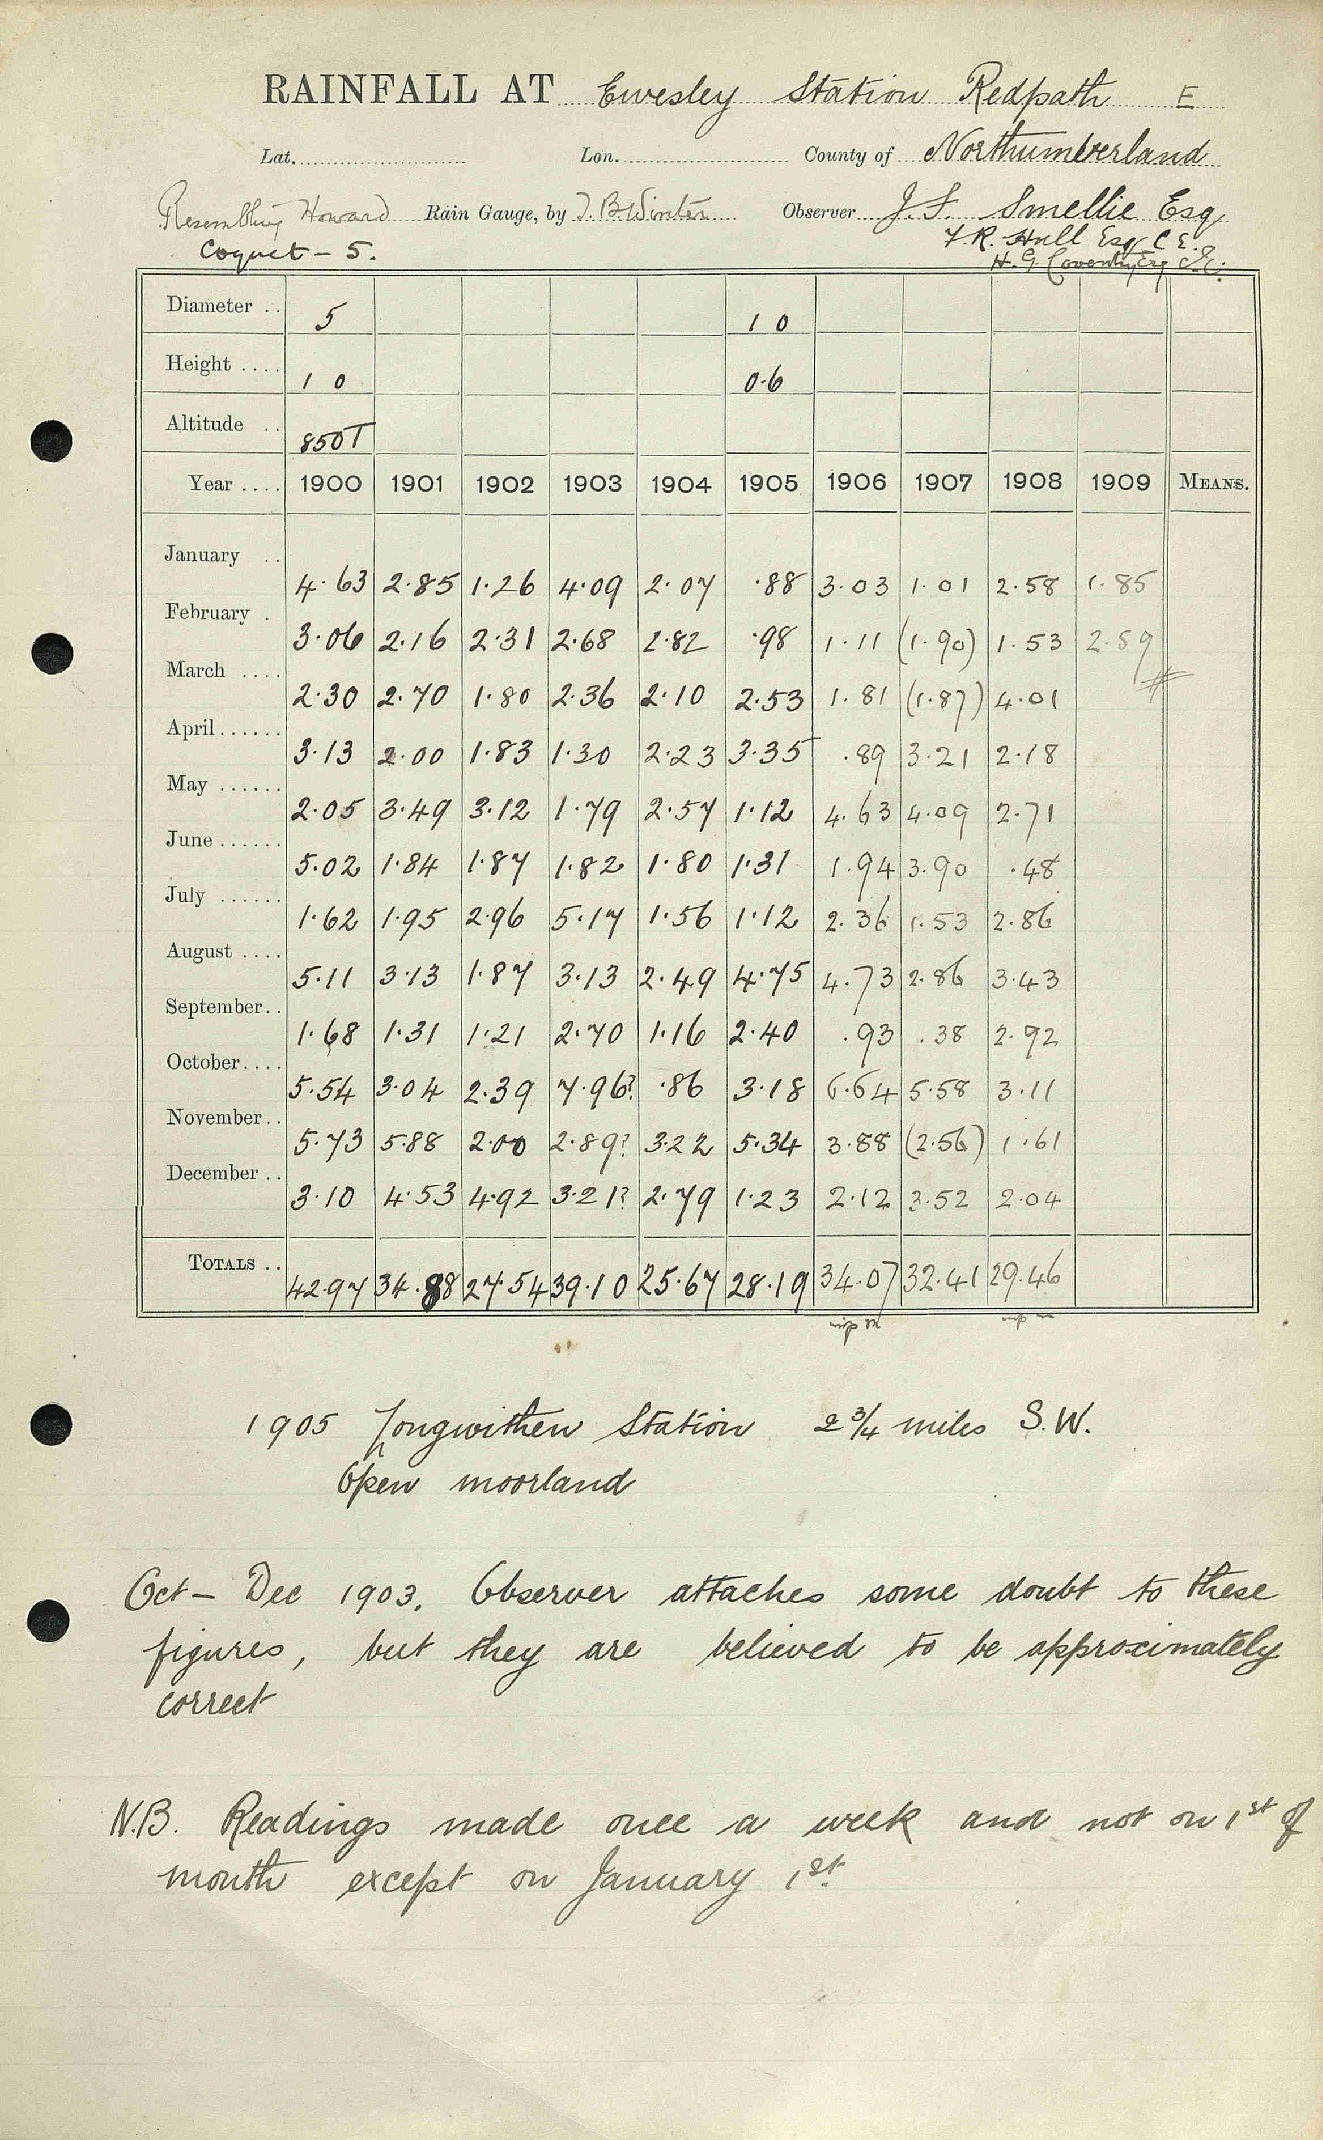 RAINFALL AT Ewesley Station Redpath E
Lat. Lon. County of Northumberland
Resembling Howard Rain Gauge, by J. B. Winter Observer J. S. Smellie Esq
Coquet - 5. F. R. Hull Esq C E.
H. G. Coventry Esq C.E.
Diameter .. 5 1 0
Height .... 1 0 0.6
Altitude .. 850T
Year .... 1900 1901 1902 1903 1904 1905 1906 1907 1908 1909 MEANS.
January .. 4.63 2.85 1.26 4.09 2.07 .88 3.03 1.01 2.58 1.85
February . 3.06 2.16 2.31 2.68 2.82 .98 1.11 (1.90) 1.53 2.59
March .... 2.30 2.70 1.80 2.36 2.10 2.53 1.81 (1.87) 4.01
April ...... 3.13 2.00 1.83 1.30 2.23 3.35 .89 3.21 2.18
May ...... 2.05 3.49 3.12 1.79 2.57 1.12 4.63 4.09 2.71
June ...... 5.02 1.84 1.87 1.82 1.80 1.31 1.94 3.90 .48
July ...... 1.62 1.95 2.96 5.17 1.56 1.12 2.36 1.53 2.86
August .... 5.11 3.13 1.87 3.13 2.49 4.75 4.73 2.86 3.43
September .. 1.68 1.31 1.21 2.70 1.16 2.40 .93 .38 2.92
October .... 5.54 3.04 2.39 7.96? .86 3.18 6.64 5.58 3.11
November .. 5.73 5.88 2.00 2.89? 3.22 5.34 3.88 (2.56) 1.61
December .. 3.10 4.53 4.92 3.21? 2.79 1.23 2.12 3.52 2.04
TOTALS .. 42.97 34.88 27.54 39.10 25.67 28.19 34.07 32.41 29.46
1905 Longwithen Station 2 3/4 miles S.W.
Open moorland
Oct - Dec 1903. Observer attaches some doubt to these
figures, but they are believed to be approximately
correct
N.B. Readings made once a week and not on 1st of
month except on January 1st.